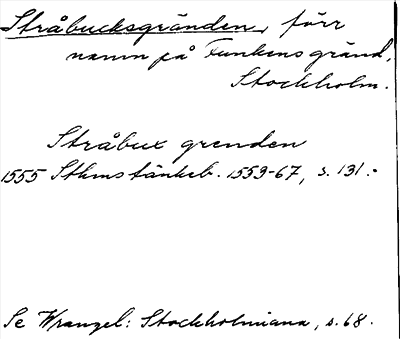 Stråbucksgränden, förr
namn på Funkens gränd,
Stockholm.
Stråbux grenden
1555 Sthms tänkeb. 1553-67, s. 131.-
Se Wrangel: Stockholmiana, s. 68.